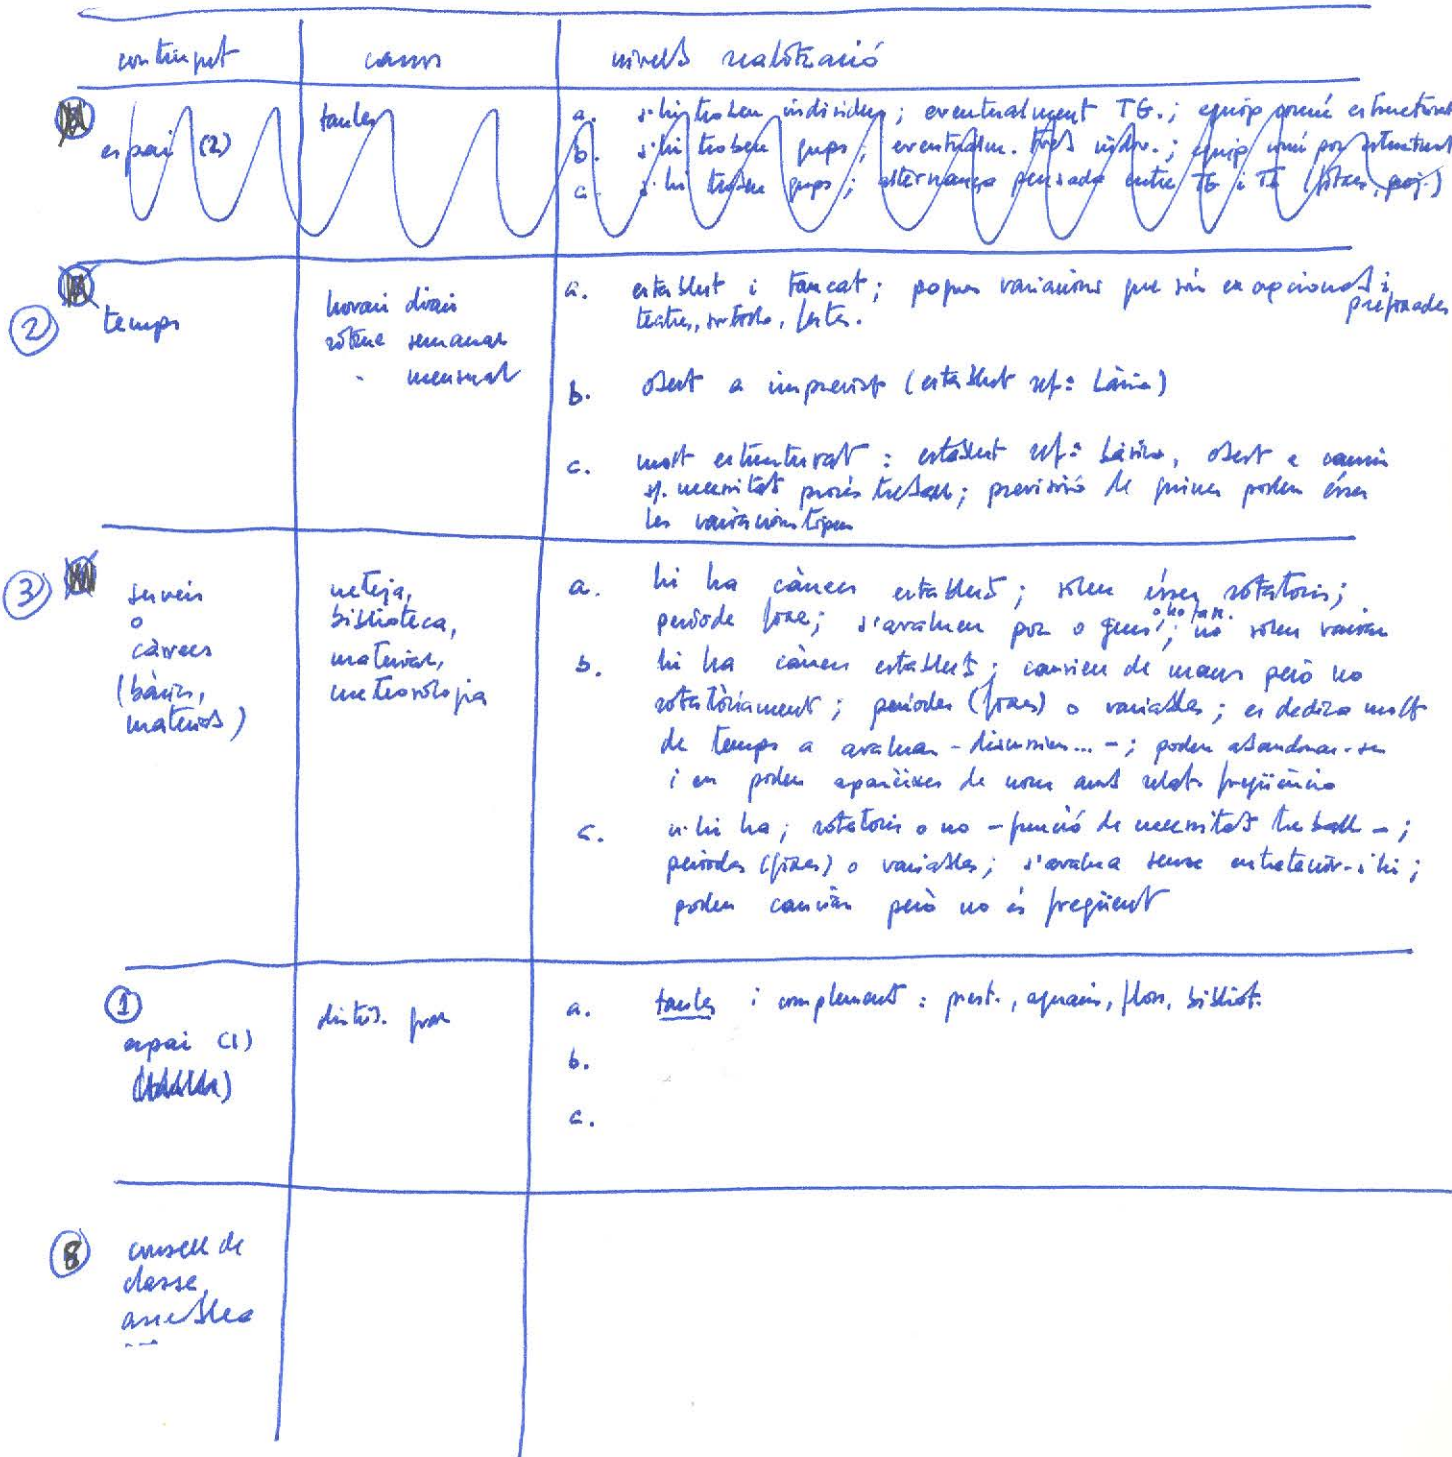 contingut canvis nivells realització
espai (2) taules
a. s'hi troben individus; eventualment TG.; equip només estructura
b. s'hi troben grups; eventualm. treb indiv.;
c. s'hi troben grups; alternança pensada entre TG i TI
2 temps
horari diari
rètme setmanal
" mensual
a. establert i tancat; poques variacions que són excepcionals i prefixades
teatre, sortida, festes.
b. obert a imprevist (establert ref: bàsica)
c. molt estructurat: establert ref: bàsica, obert a canvis
sg. necessitats procés treball; previsió de quines poden ésser
les variacions tipus
3 serveis
o
càrrecs
(bàsics,
materials)
neteja,
biblioteca,
material,
meteorologia
a. hi ha càrrecs establerts; solen ésser rotatoris;
període fixe; s'avaluen poc o gens; no solen variar
b. hi ha càrrecs establerts; canvien de mans però no
rotatòriament; períodes (fixes) o variables; es dedica molt
de temps a avaluar - discussions... -; poden abandonar-se
i en poden aparèixer de nous amb relat. freqüència
c. n'hi ha; rotatoris o no - funció de necessitats treball -;
períodes (fixes) o variables; s'avalua sense entretenir-s'hi;
poden canviar però no és freqüent
1
espai (1)
distrib.
a. taules i complement: prest., aquaris, flors, bibliot.
b.
c.
8 consell de
classe,
assemblea
...